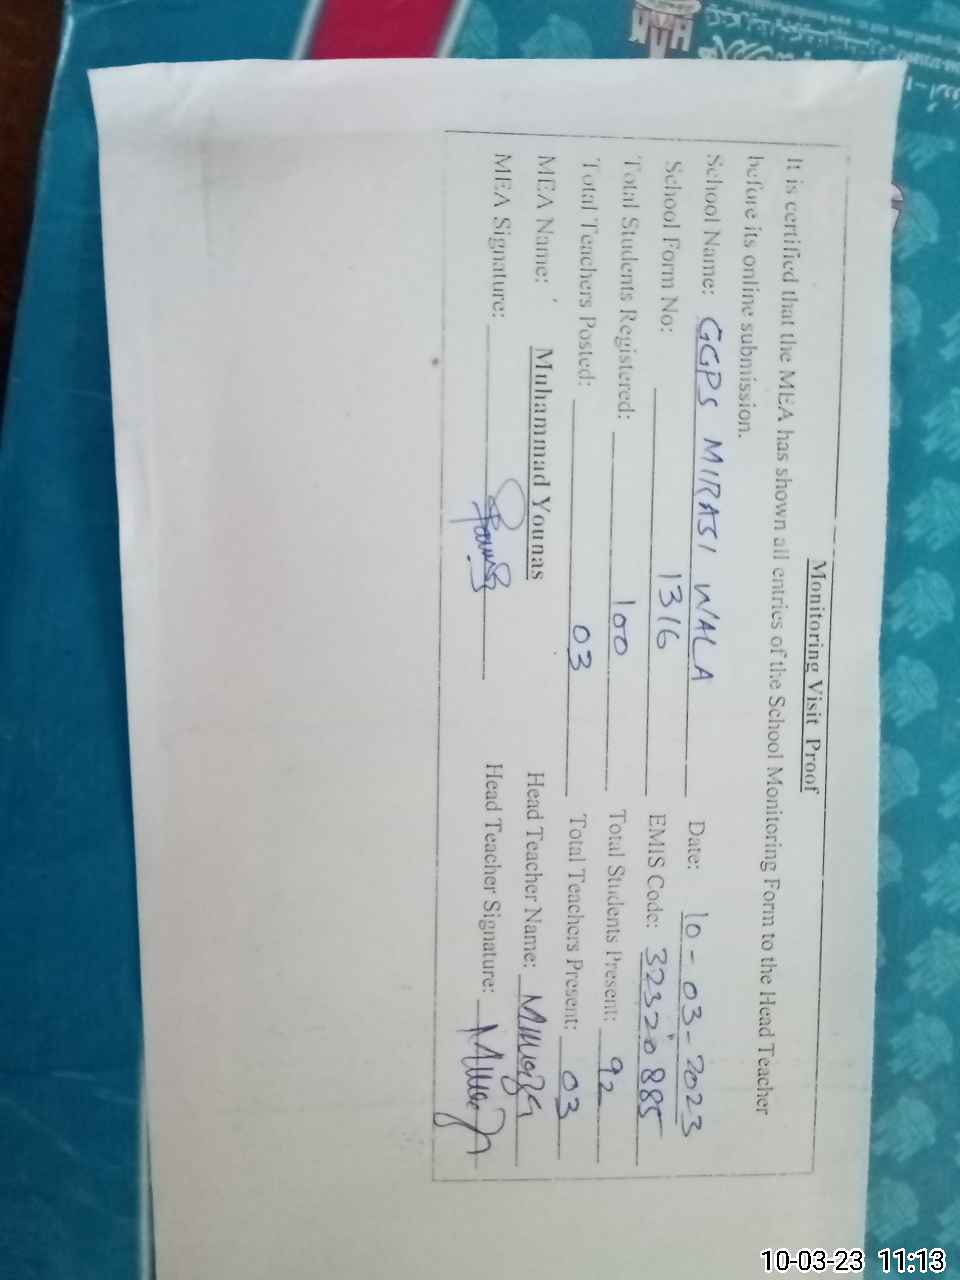 Monitoring Visit Proof
It is certified that the MEA has shown all entries of the School Monitoring Form to the Head Teacher
before its online submission.
School Name: GGPS MIRASI WALA Date: 10-03-2023
School Form No: 1316 EMIS Code: 32320885
Total Students Registered: 100 Total Students Present: 92
Total Teachers Posted: 03 Total Teachers Present: 03
MEA Name: Muhammad Younas Head Teacher Name:
MEA Signature: Head Teacher Signature:
10-03-23 11:13